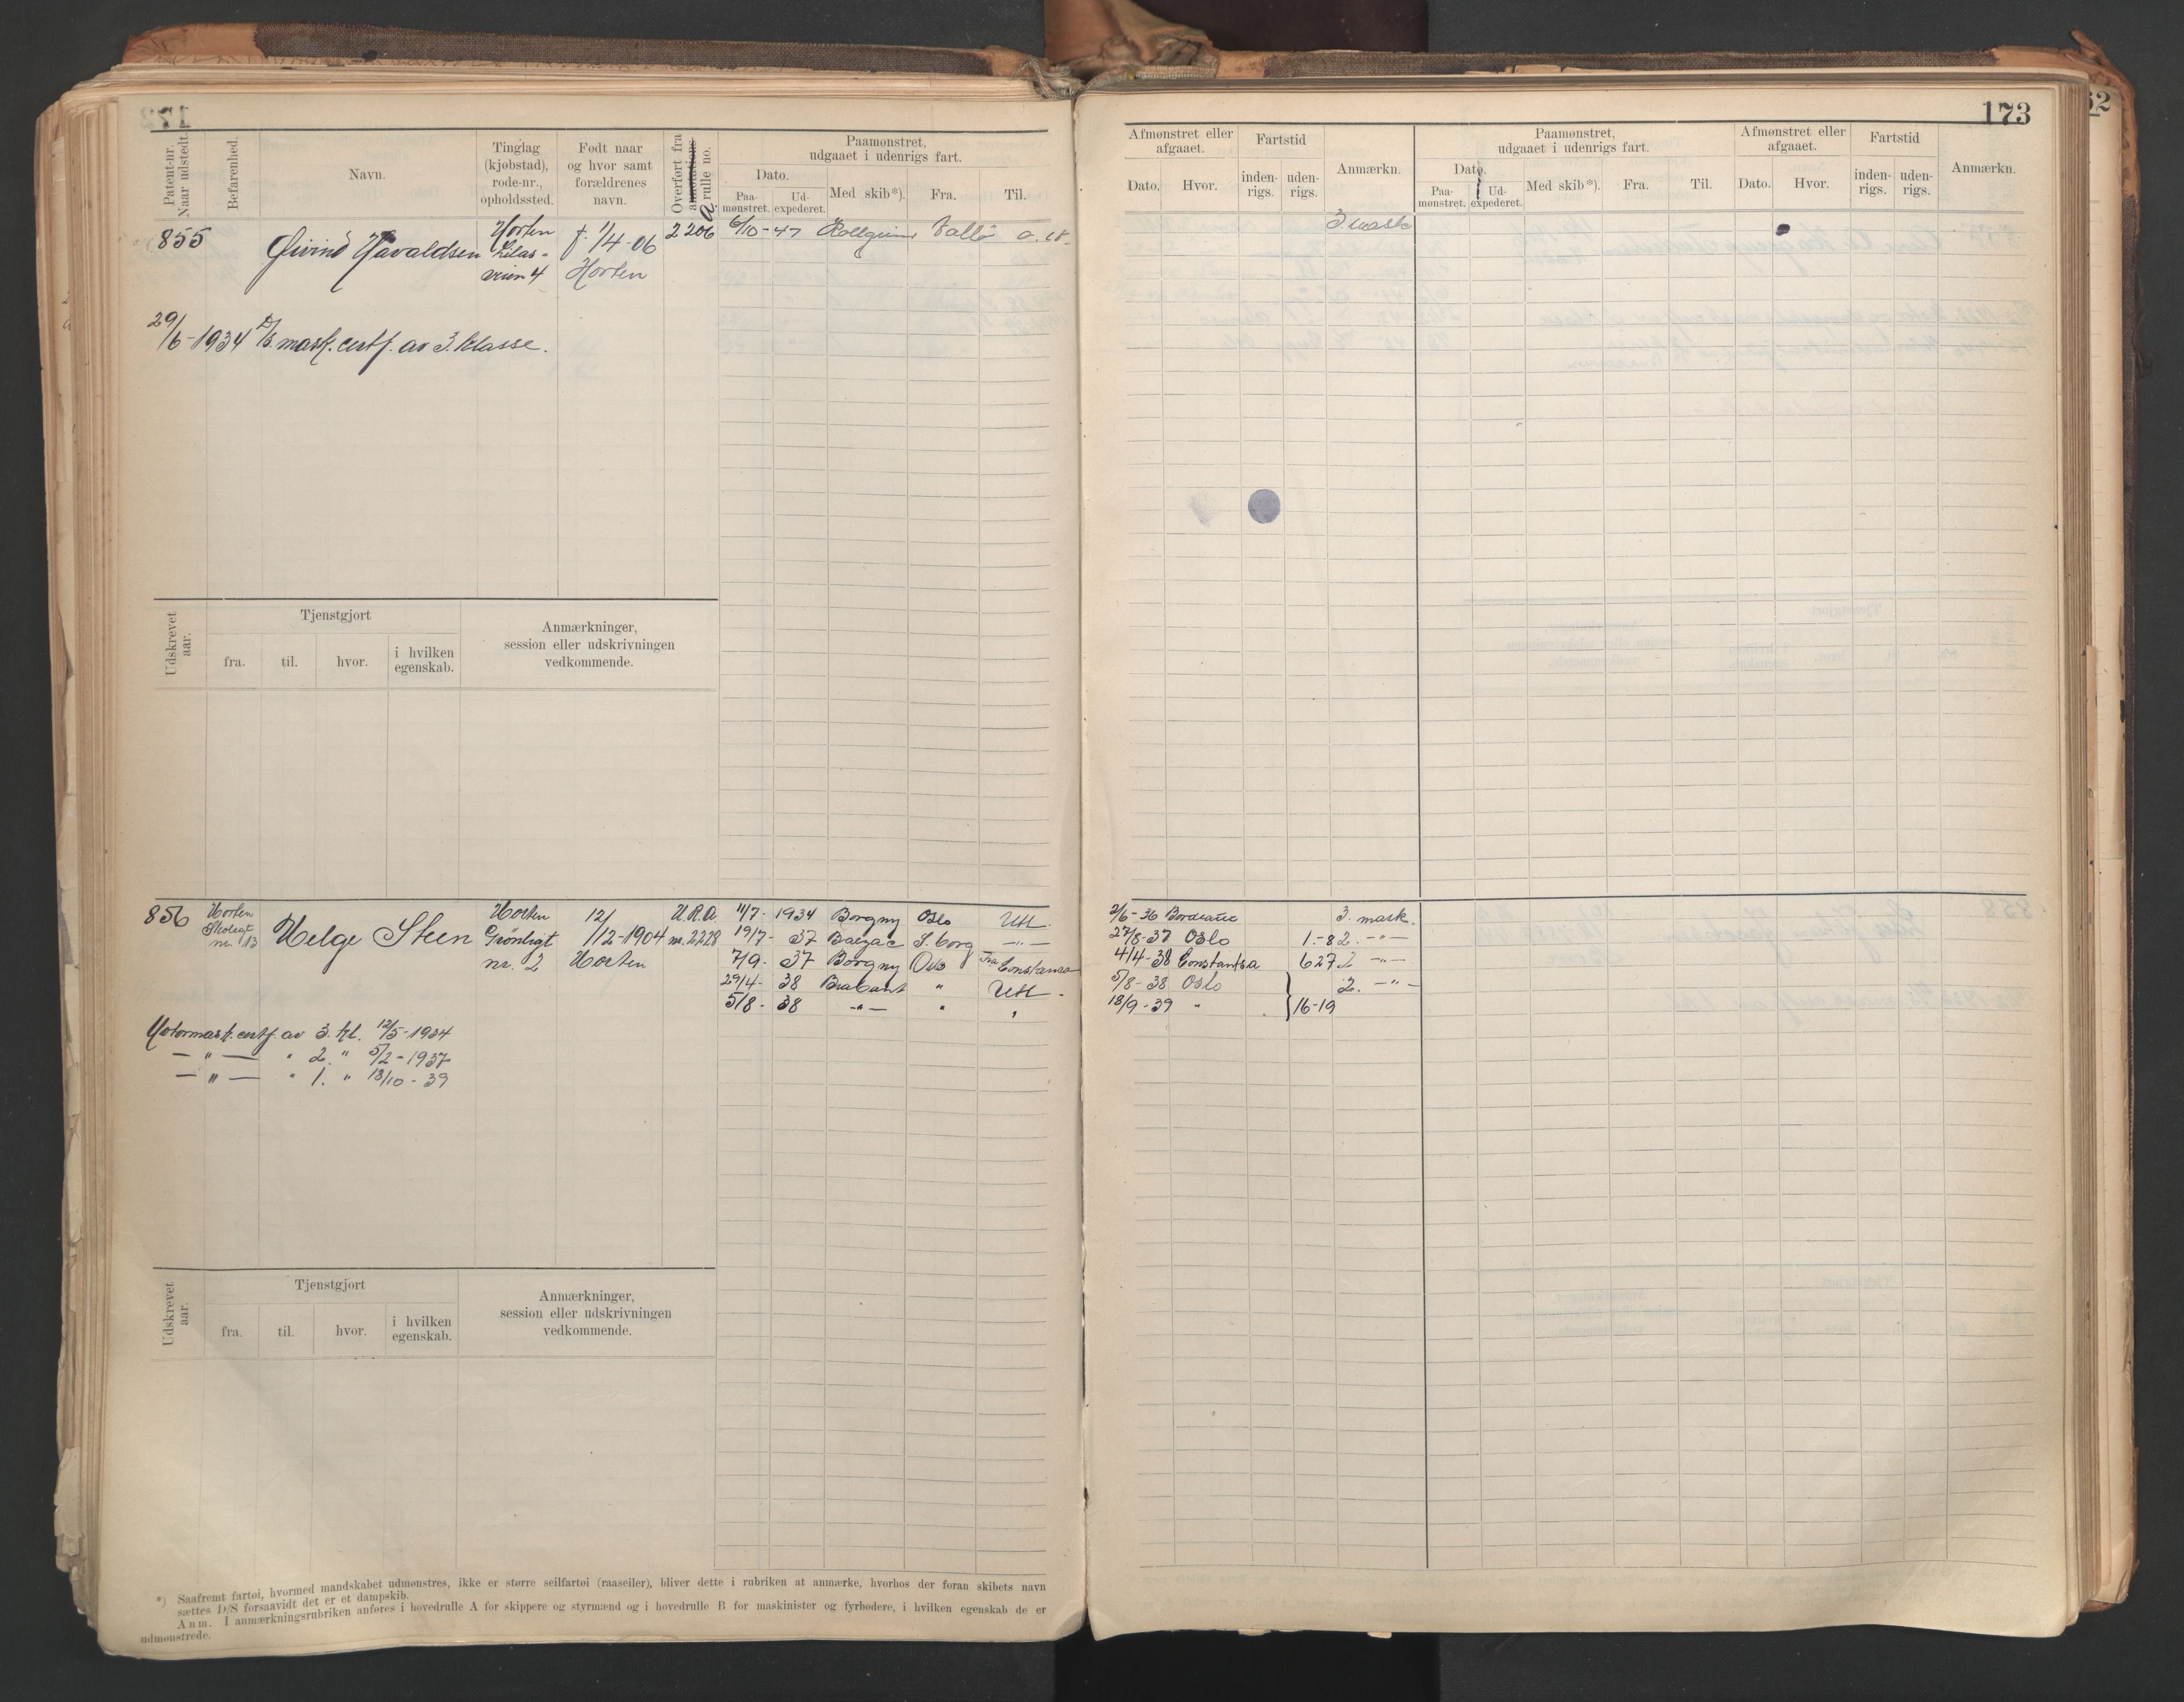 173
62
Patent-nr. Naar udstedt.
Befarenhed.
Navn.
Tinglag (kjøbstad), rode-nr., opholdssted.
Født naar og hvor samt forældrenes navn.
Overført fra annotations A rulle no.
Paamønstret, udgaaet i udenrigs fart.
Dato.
Paa-mønstret.
Ud-expederet.
Med skib*).
Fra.
Til.
Afmønstret eller afgaaet.
Dato.
Hvor.
Fartstid
inden-rigs.
uden-rigs.
Anmærkn.
Paamønstret, udgaaet i udenrigs fart.
Dato.
Paa-mønstret.
Ud-expederet.
Med skib*).
Fra.
Til.
Afmønstret eller afgaaet.
Dato.
Hvor.
Fartstid
inden-rigs.
uden-rigs.
Anmærkn.
855 Øivind Havaldsen Horten f. 1/4-06 2206 6/10-47 Vallö 3 mask
4 Horten
29/6-1934 D/S mask. certf. av 3. klasse.
Udskrevet aar.
Tjenstgjort
fra.
til.
hvor.
i hvilken egenskab.
Anmærkninger, session eller udskrivningen vedkommende.
856 Horten Helge Steen Horten 12/12-1904 U.R.A. 11/7- 1934 Borgny Oslo Utl. 2/6-36 Bordeaux 3. mask.
nr. 13 Grönligt nr. 2228 19/7- 37 Balzac S.borg —"— 27/8-37 Oslo 1.-8 2. —"—
nr. 2 Horten 7/9- 37 Borgny Oslo Fra Constanza 4/4-38 Constantsa 627 2 —"—
29/4- 38 Brabant " Utl. 5/8-38 Oslo 2. —"—
5/8- 38 —"— " " 18/9-39 " 16-19
Motormask. certf. av 3. kl. 12/5-1934
— " — " 2. " 5/2-1937
— " — " 1. " 18/10-39
Udskrevet aar.
Tjenstgjort
fra.
til.
hvor.
i hvilken egenskab.
Anmærkninger, session eller udskrivningen vedkommende.
*) Saafremt fartøi, hvormed mandskabet udmønstres, ikke er større seilfartøi (raaseiler), bliver dette i rubriken at anmærke, hvorhos der foran skibets navn
sættes D/S forsaavidt det er et dampskib.
Anm. I anmærkningsrubriken anføres i hovedrulle A for skippere og styrmænd og i hovedrulle B for maskinister og fyrbødere, i hvilken egenskab de er
udmønstrede.